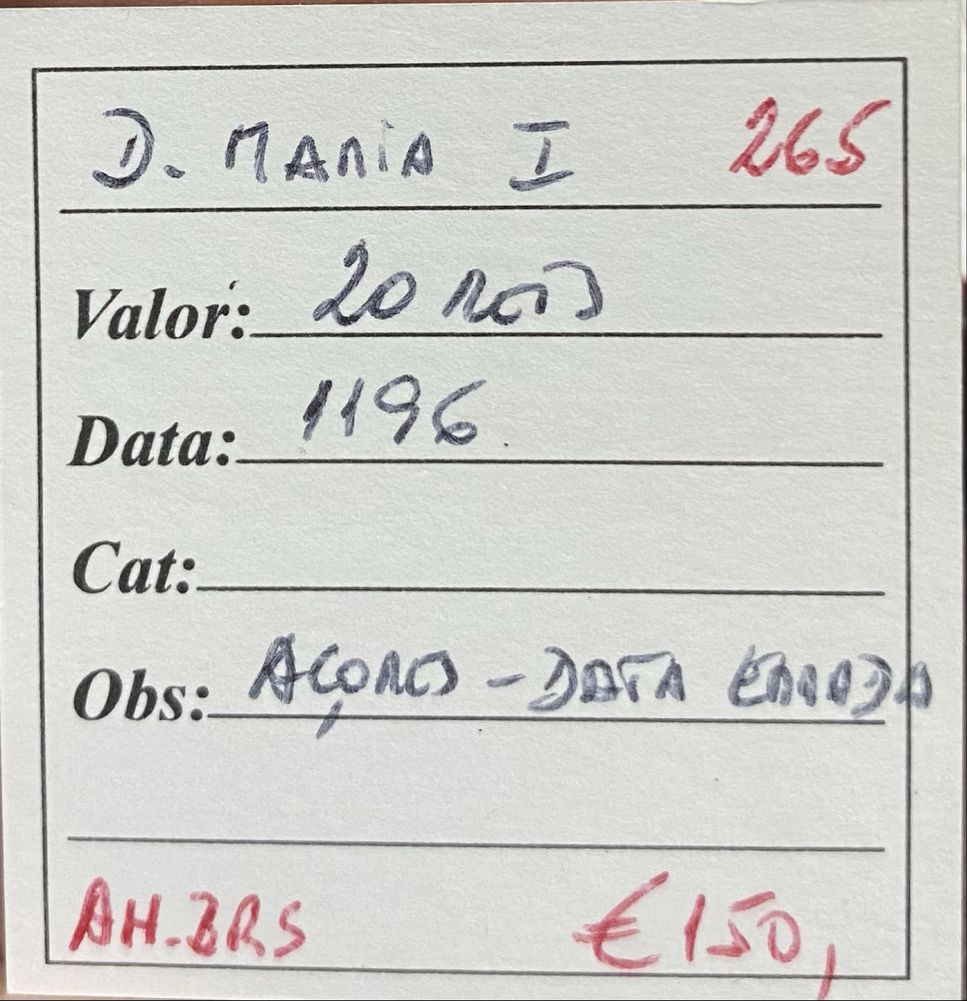 D. MARIA I 265
Valor: 20 REIS
Data: 1196
Cat:
Obs: AÇORES - DATA ERRADA
AH.BRS €150,